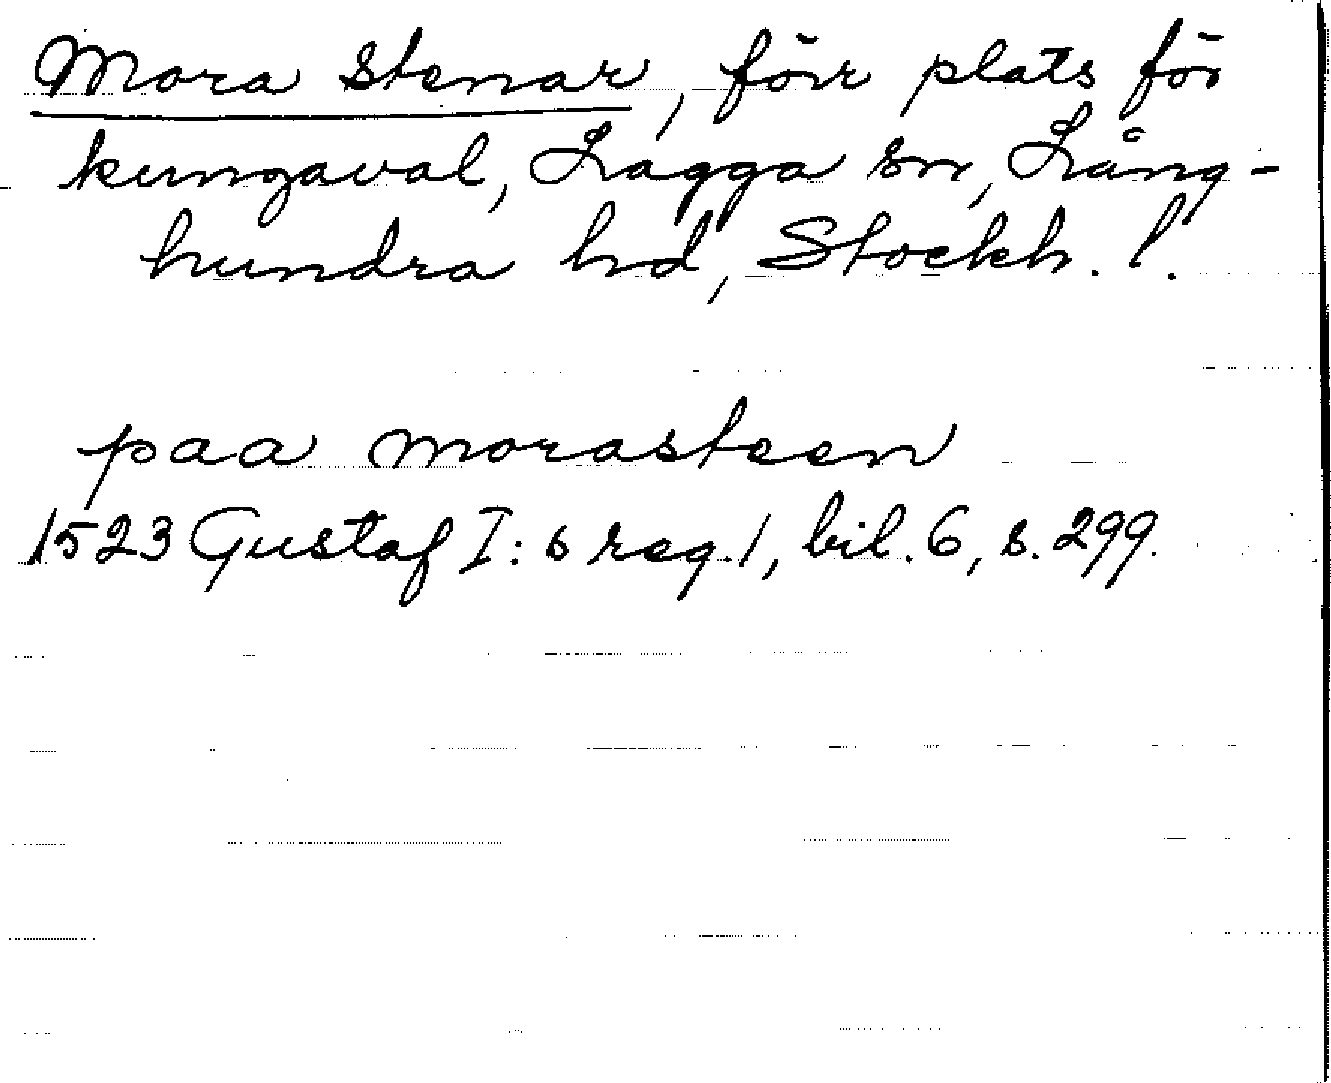 Mora Stenar, förr plats för
kungaval, Lagga sn, Lång-
hundra hd, Stockh. l.
paa morasteen
1523 Gustaf I:s reg. 1, bil. 6, s. 299.